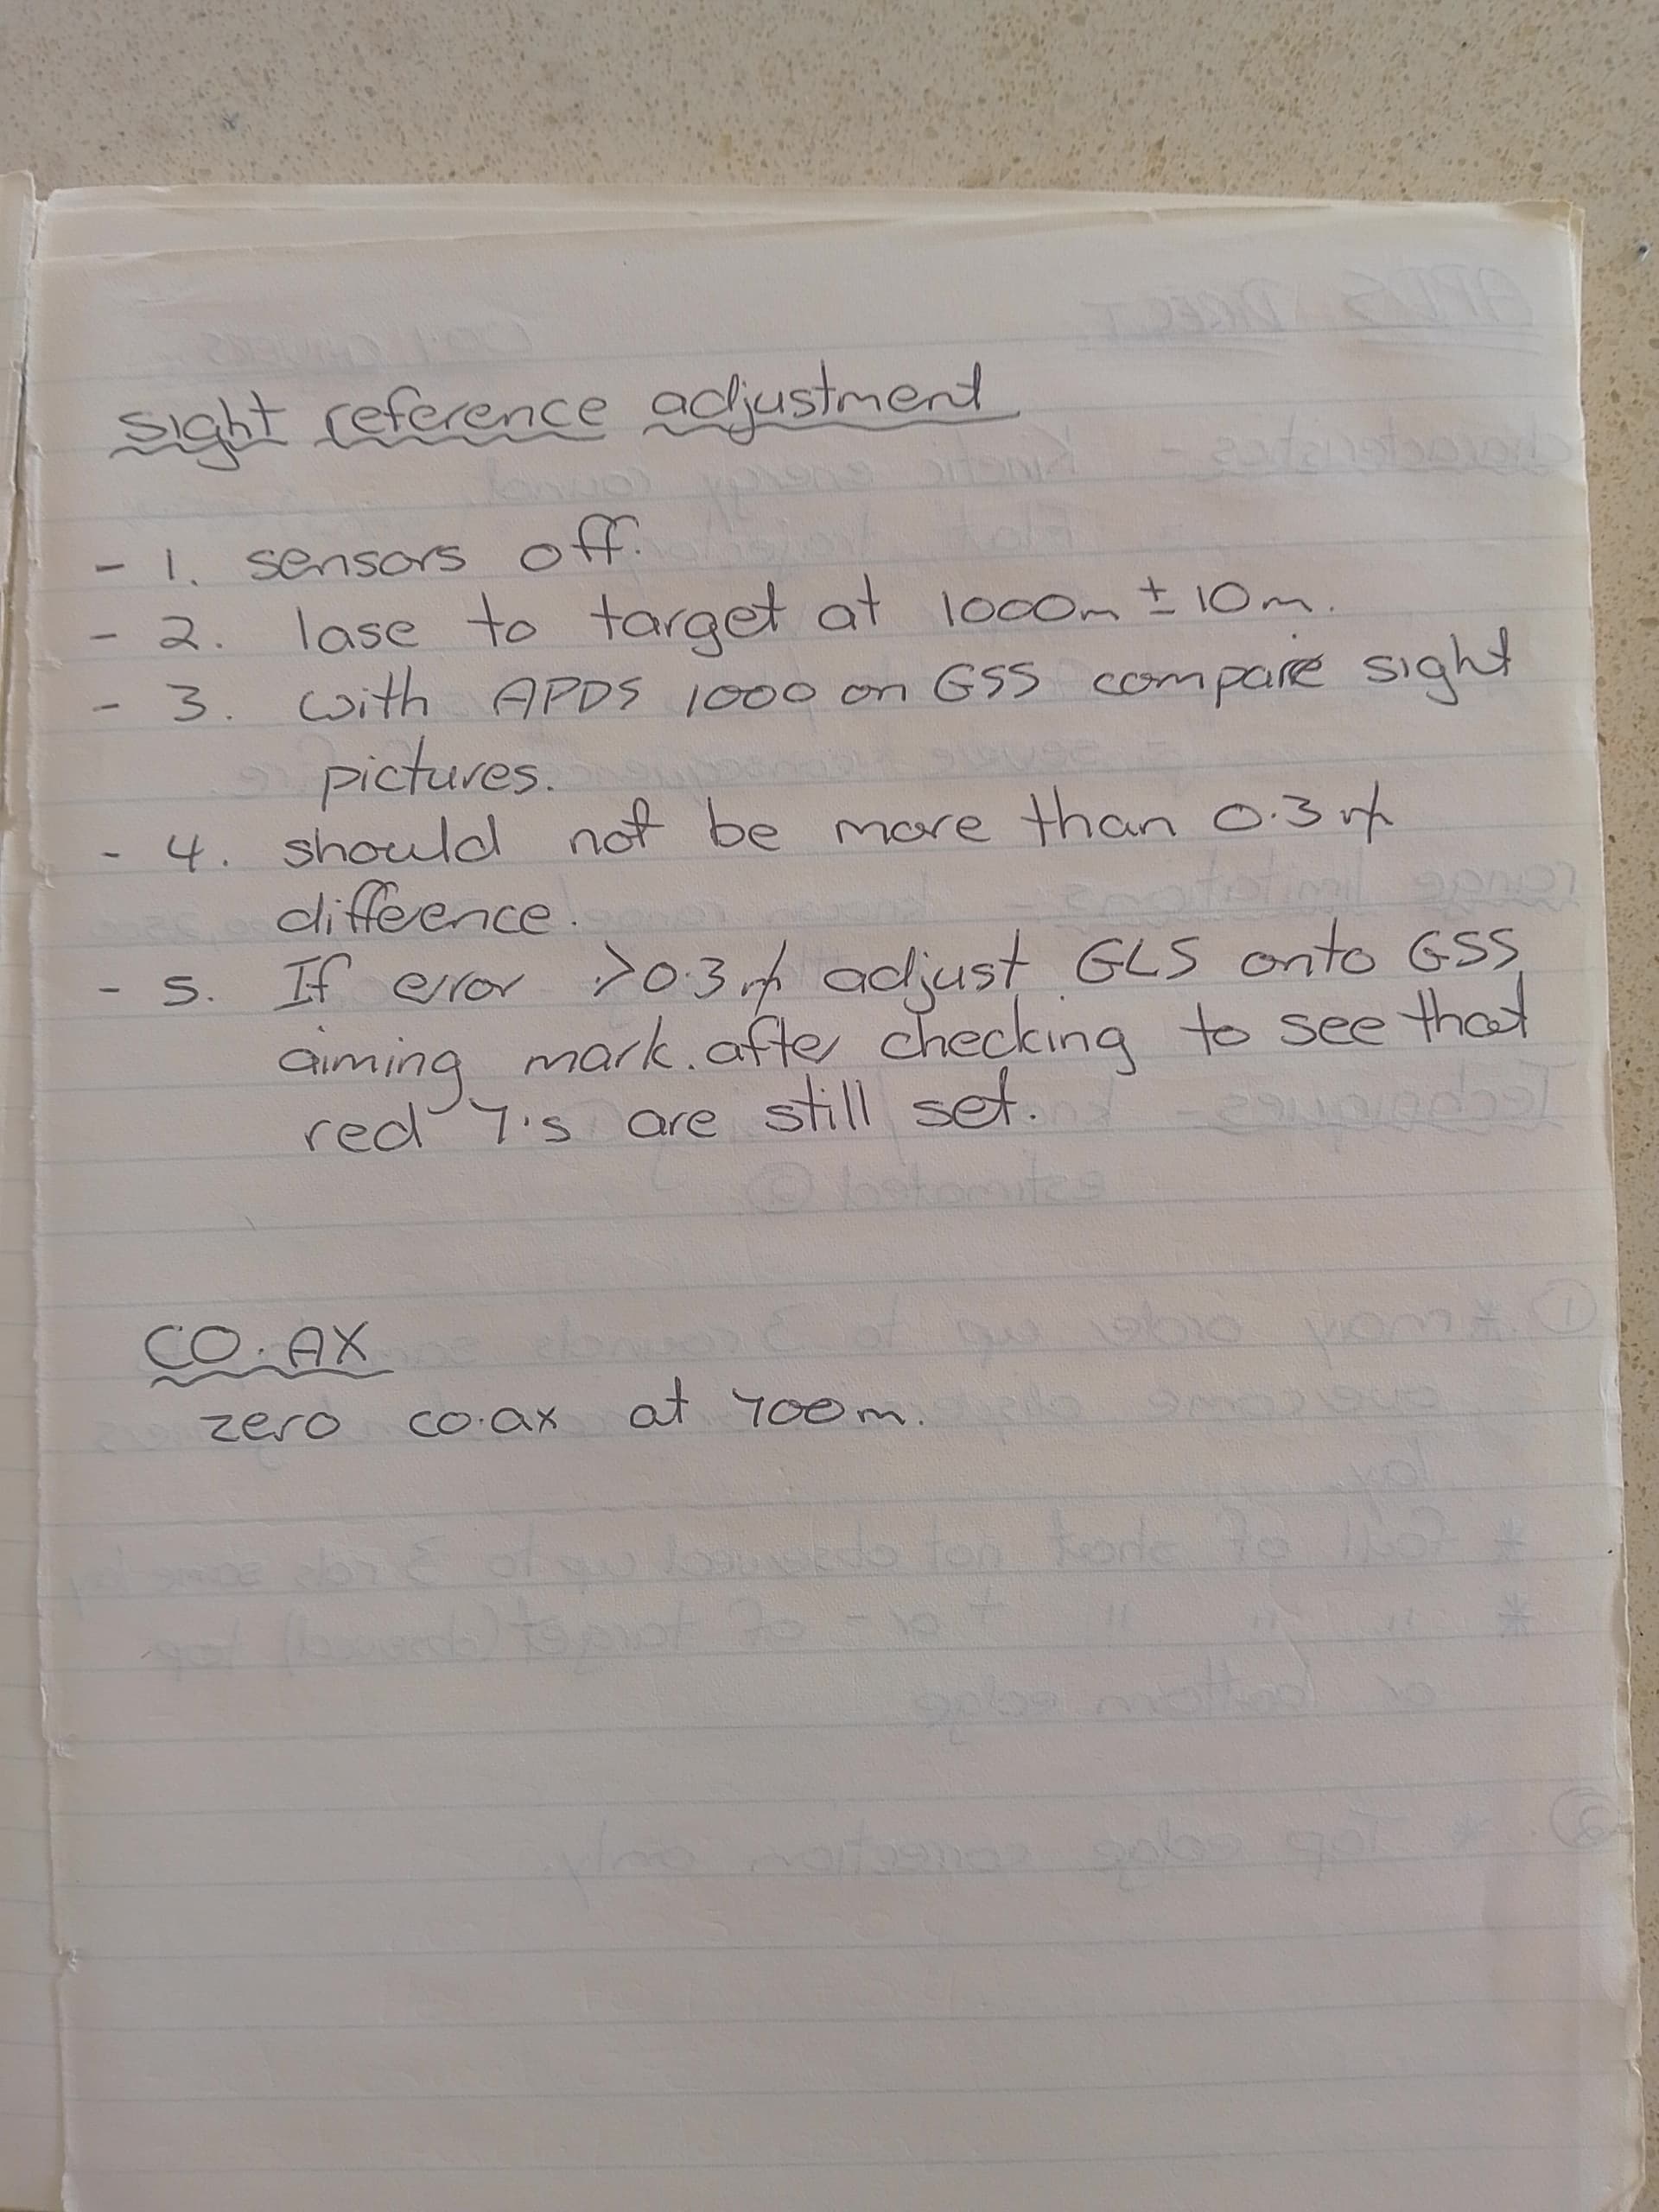 sight reference adjustment
- 1. sensors off.
- 2. lase to target at 1000m ± 10m.
- 3. with APDS 1000 on GSS compare sight
pictures.
- 4. should not be more than 0.3 m̸
difference.
- 5. If error >0.3 m̸ adjust GLS onto GSS
aiming mark. after checking to see that
red 7's are still set.
CO.AX
zero co.ax at 700m.